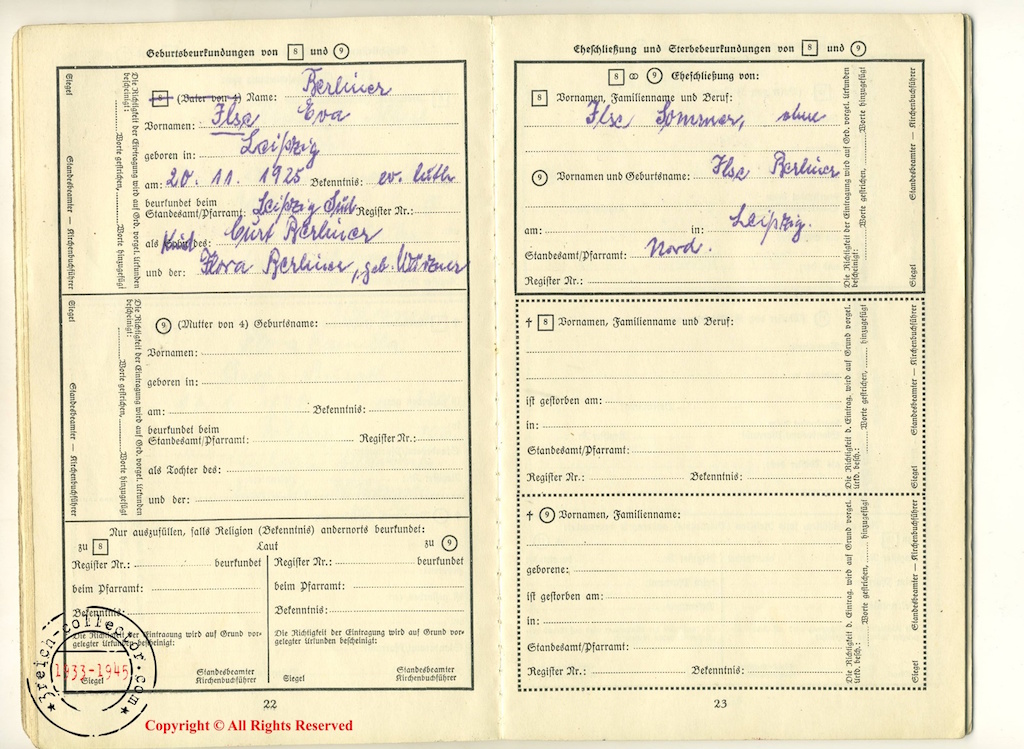 Geburtsbeurkundungen von 8 und 9
8 (Vater von 4) Name: Berliner
Vornamen: Ilse Eva
geboren in: Leipzig
am: 20. 11. 1925 Bekenntnis: ev. luth
beurkundet beim
Standesamt/Pfarramt: Leipzig Süd Register Nr.:
als Kind des: Curt Berliner
und der: Flora Berliner, geb.
Die Richtigkeit der Eintragung wird auf Grd. vorgel. Urkunden
bescheinigt: Worte gestrichen, Worte hinzugefügt
Siegel Standesbeamter — Kirchenbuchführer
9 (Mutter von 4) Geburtsname:
Vornamen:
geboren in:
am: Bekenntnis:
beurkundet beim
Standesamt/Pfarramt: Register Nr.:
als Tochter des:
und der:
Die Richtigkeit der Eintragung wird auf Grd. vorgel. Urkunden
bescheinigt: Worte gestrichen, Worte hinzugefügt
Siegel Standesbeamter — Kirchenbuchführer
Nur auszufüllen, falls Religion (Bekenntnis) anderorts beurkundet:
zu 8 Laut zu 9
Register Nr.: beurkundet
beim Pfarramt:
Bekenntnis:
Die Richtigkeit der Eintragung wird auf Grund vor-
gelegter Urkunden bescheinigt:
Standesbeamter
Siegel Kirchenbuchführer
Register Nr.: beurkundet
beim Pfarramt:
Bekenntnis:
Die Richtigkeit der Eintragung wird auf Grund vor-
gelegter Urkunden bescheinigt:
Standesbeamter
Siegel Kirchenbuchführer
22
Eheschließung und Sterbebeurkundungen von 8 und 9
8 ∞ 9 Eheschließung von:
8 Vornamen, Familienname und Beruf:
Ilse Sommer, ohne
9 Vornamen und Geburtsname: Ilse Berliner
am: in: Leipzig.
Standesamt/Pfarramt: Nord.
Register Nr.:
Die Richtigkeit der Eintragung wird auf Grd. vorgel. Urkunden
bescheinigt: Worte gestrichen, Worte hinzugefügt
Siegel Standesbeamter — Kirchenbuchführer
† 8 Vornamen, Familienname und Beruf:
ist gestorben am:
in:
Standesamt/Pfarramt:
Register Nr.: Bekenntnis:
Die Richtigkeit d. Eintrag. wird auf Grund vorgel.
Urkd. besch.: Worte gestrichen, hinzugefügt
Siegel Standesbeamter — Kirchenbuchführer
† 9 Vornamen, Familienname:
geborene:
ist gestorben am:
in:
Standesamt/Pfarramt:
Register Nr.: Bekenntnis:
Die Richtigkeit d. Eintrag. wird auf Grund vorgel.
Urkd. besch.: Worte gestrichen, hinzugefügt
Siegel Standesbeamter — Kirchenbuchführer
23
3reich-collector.com
1933-1945
Copyright © All Rights Reserved